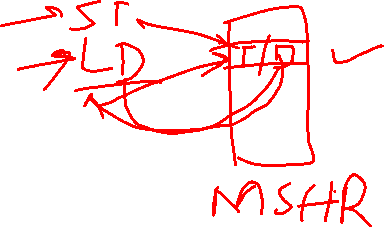 ST
LD
I/D
MSHR